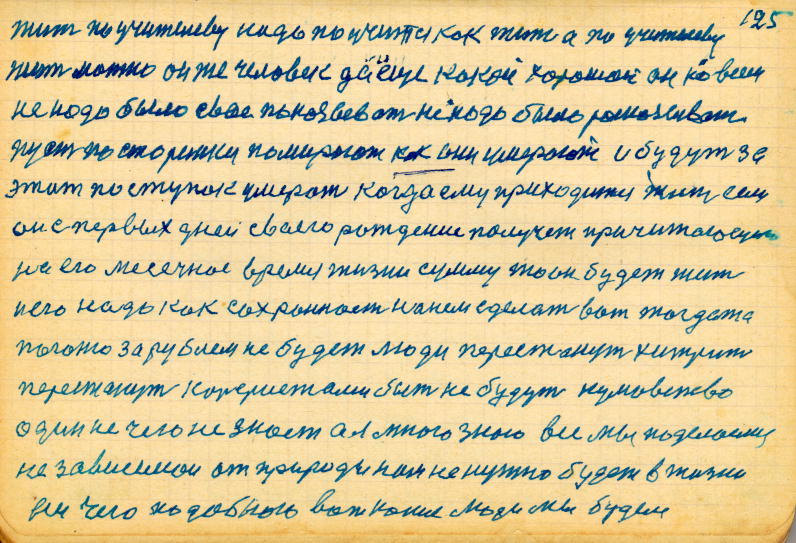 125
жит поучителеву надо поучится как жит а по учителеву
жит можно он же человек да еще какой хорошой он ко всем
не надо было свое показвеват не надо было
пуст по старенки помирают как они умерают и будут за
этот поступок умерат когда ему приходится жит если
он с первых дней своего рождение получет причитающую
на его месечное время жизни сумму то он будет жит
него надо как сохранност на нем сделат вот тогда та
погото за рублем не будет люди перестанут хитрит
перестанут кареристами быт не будут кумовство
один не чего не знает а я много знаю все мы поделаемся
не зависимой от природы нам не нужно будет в жизни
чего подобного вот какие люди мы будем